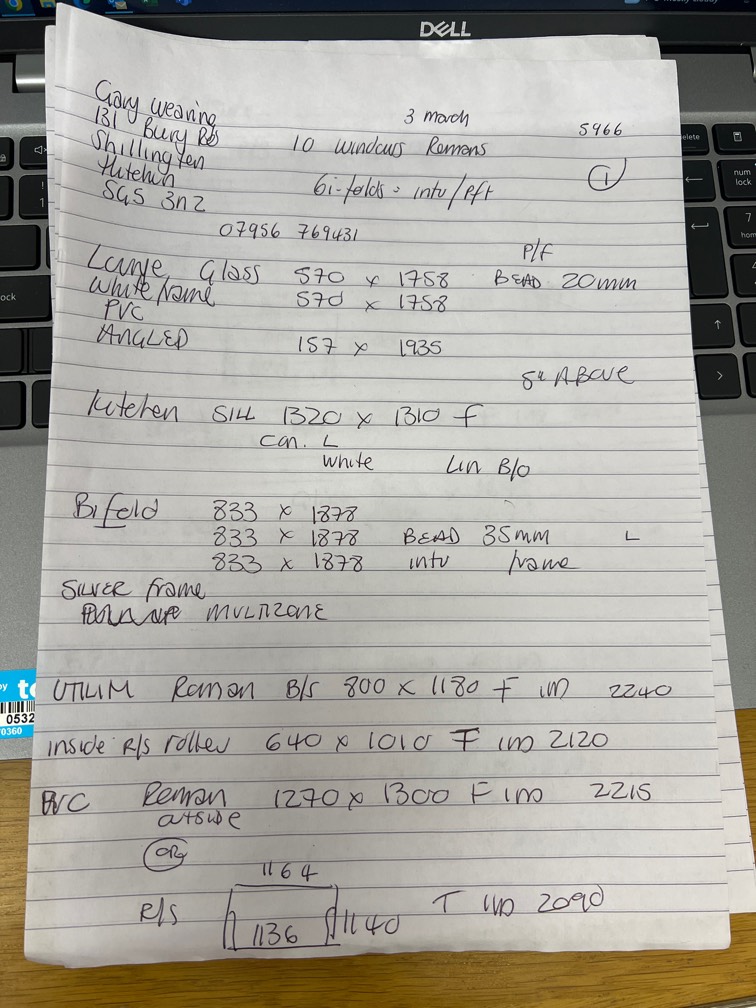 DELL
Gary Wearing
131 Bury Rd
Shillington
Hitchin
SG5 3NZ
3 March
5966
10 windows Romans
1
Bi-folds = intu/Pft
07956 769431
P/F
Large Glass 570 x 1758 BEAD 20mm
White frame 570 x 1758
PVC
ANGLED 157 x 1935
5" ABove
Kitchen SILL 1320 x 1310 F
Con. L
White Lin B/O
Bifold 833 x 1878
833 x 1878 BEAD 35mm L
833 x 1878 intu frame
SILVER frame
MULTIZONE
0532
70360
UTILITY Roman B/S 800 x 1180 F 2240
inside R/S roller 640 x 1010 F 2120
PVC Roman 1270 x 1300 F 2215
outside
OR
1164
R/S 1136 1140 T 2090